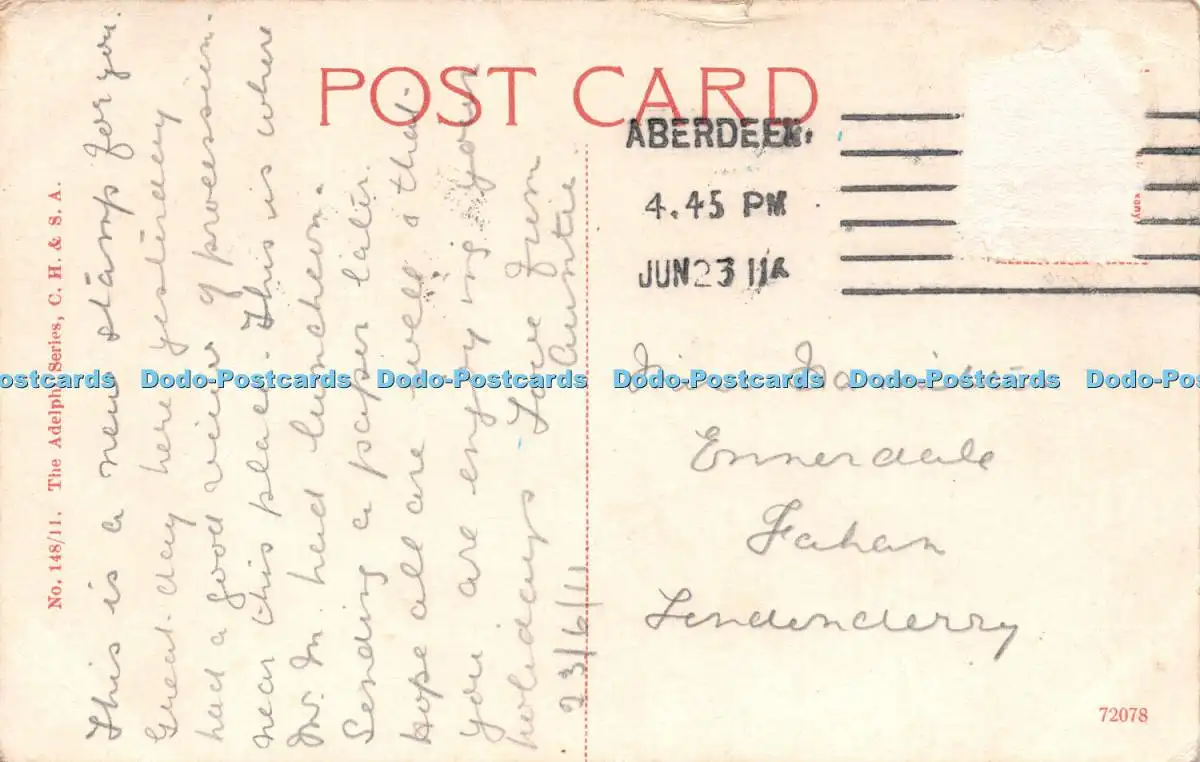 POST CARD
ABERDEEN.
4.45 PM
JUN 23 11
No. 148/11. The Adelphi Series, C. H. & S. A.
This is a new stamp for you.
Great day here yesterday
had a good view of procession
near this place. This is where
W. M. had luncheon.
Sending a paper later.
Hope all are well & that
you are enjoying your
holidays Love from
Auntie.
23/6/11
Ennerdale
Fahan
Londonderry
72078
ostcards Dodo-Postcards Dodo-Postcards Dodo-Postcards Dodo-Postcards Dodo-Pos